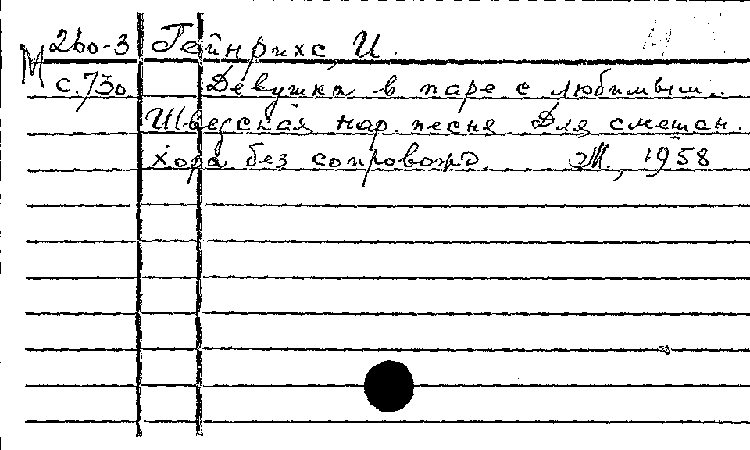 М 260-3 Гейнрихс, И.
С.730 Девушка в паре с любимым.
Шведская нар. песня Для смешан.
хора без сопровожд. М., 1958